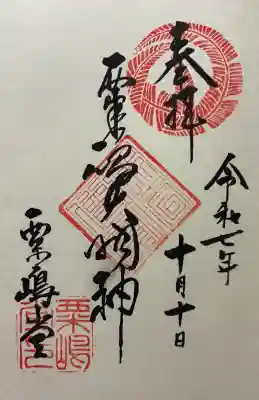 奉拝
令和七年
十月十日
粟嶋明神
粟嶋堂
粟嶋